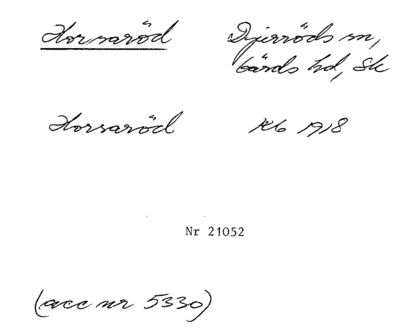 Horsaröd Djurröds sn,
Gärds hd, Sk
Horsaröd Kb 1918
Nr 21052
(acc nr 5330)